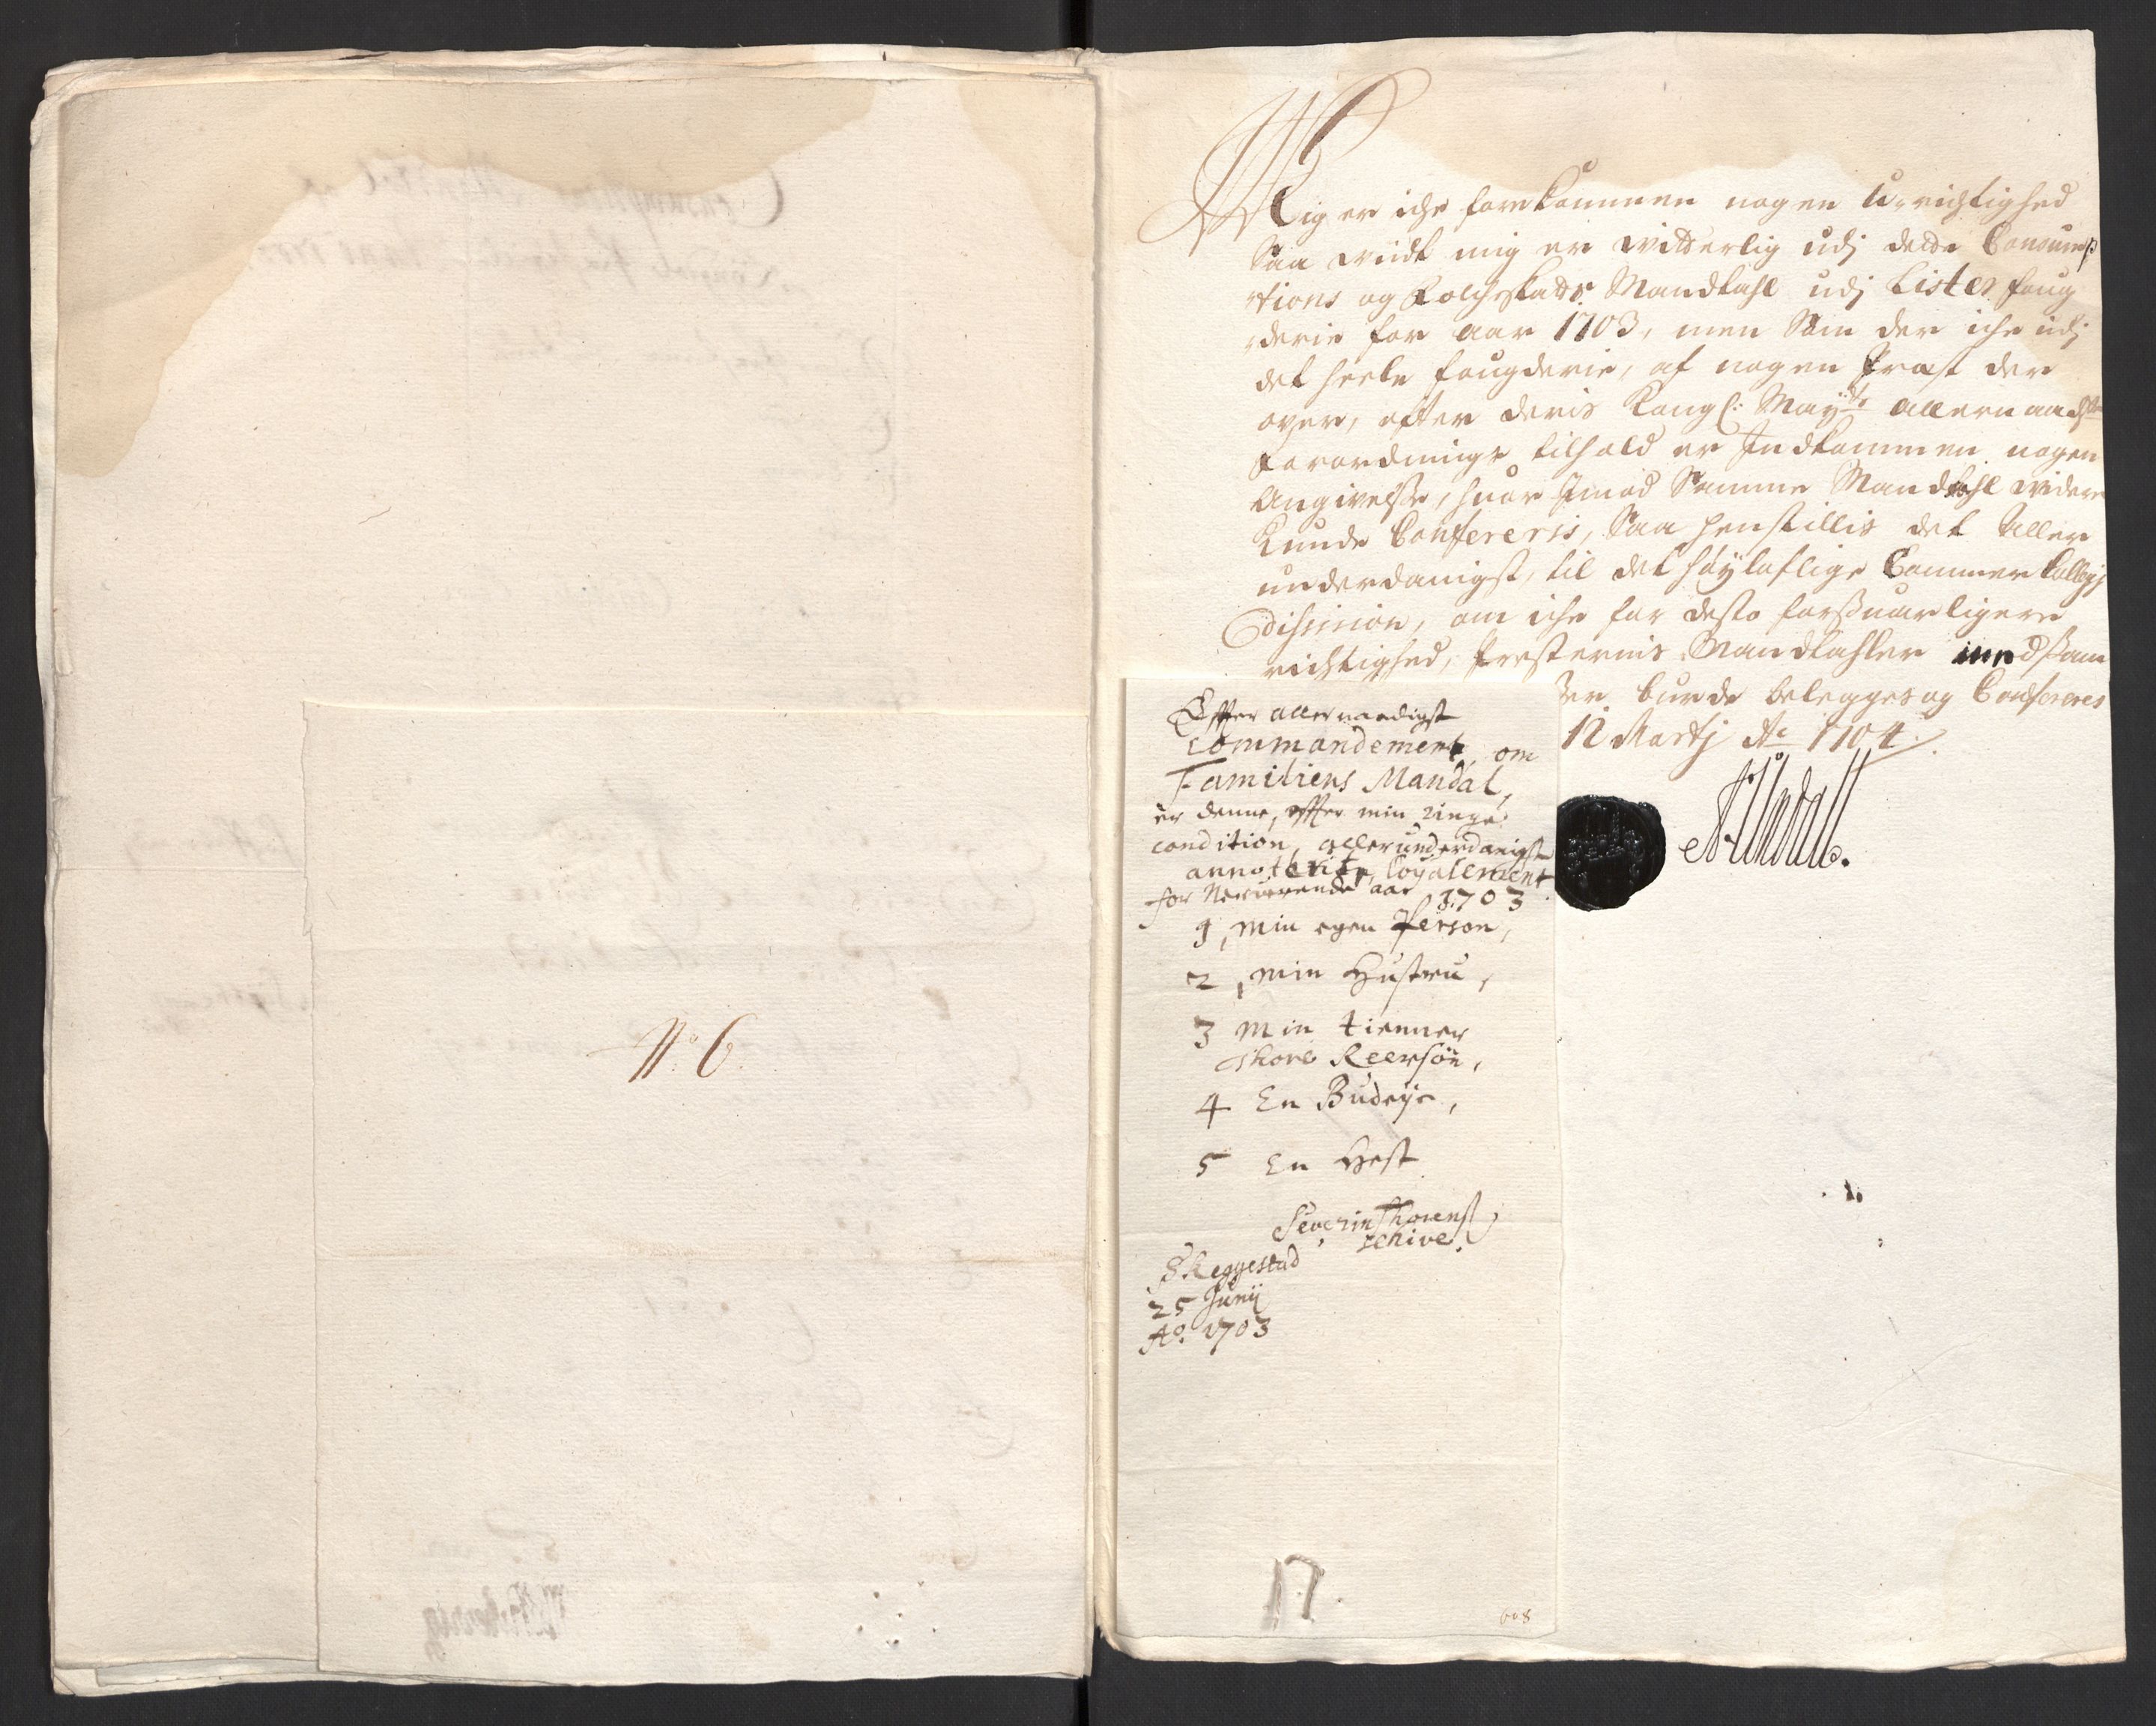 No. 6.
Mig er iche forekommen nogen U-richtighed
Saa widt mig er witterlig udj dette Consump
tions og Folcheskatts Mandtahl udj Lister foug
derie for aar 1703, men Som der iche udj
det heele fougderie, af nogen Præst der
over, efter deris Kongl: Mayts allernaadste
forordnings tilhold er Indkommen nogen
Angivelsse, huor Jmod Samme Mandtahl widere
Kunde Confereris, Saa henstillis det aller
underdanigst, til det höyloflige Cammer Collegij
Disission, om iche for desto forssuarligere
richtighed, Præsternis Mandtahler
burde belegges og Confereres
12 Martj Ao 1704.
Effter allernaadigst
Commandement om
Familiens Mandal,
er denne, effter min ringe
condition, allerunderdanigste
loyalement
for Nerverende aar 1703
1, Min egen Person,
2, Min Hustru,
3 Min tienner
Thore Reersön,
4 En Budeye,
5 En Hest
Severin Thorenss
Schive.
Skeggestad
25 Junij
Ao. 1703
17.
608